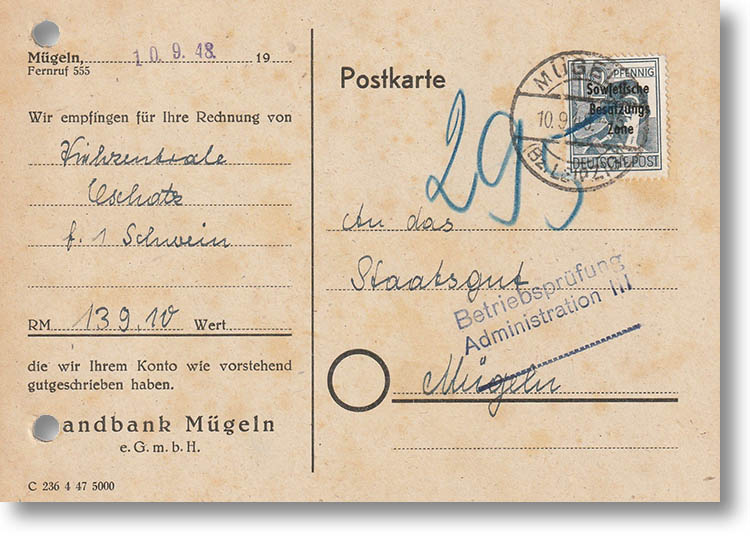 Mügeln, 10.9.48. 19
Fernruf 555
Wir empfingen für Ihre Rechnung von
Viehzentrale
Oschatz
f. 1 Schwein
RM 139.10 Wert
die wir Ihrem Konto wie vorstehend
gutgeschrieben haben.
andbank Mügeln
e. G. m. b. H.
C 236 4 47 5000
Postkarte
MÜGEL
10.9.48
(Bz. LEIPZ
PFENNIG
Sowjetische
Besatzungs
Zone
DEUTSCHE POST
An das
Staatsgut
Betriebsprüfung
Administration III
Mügeln